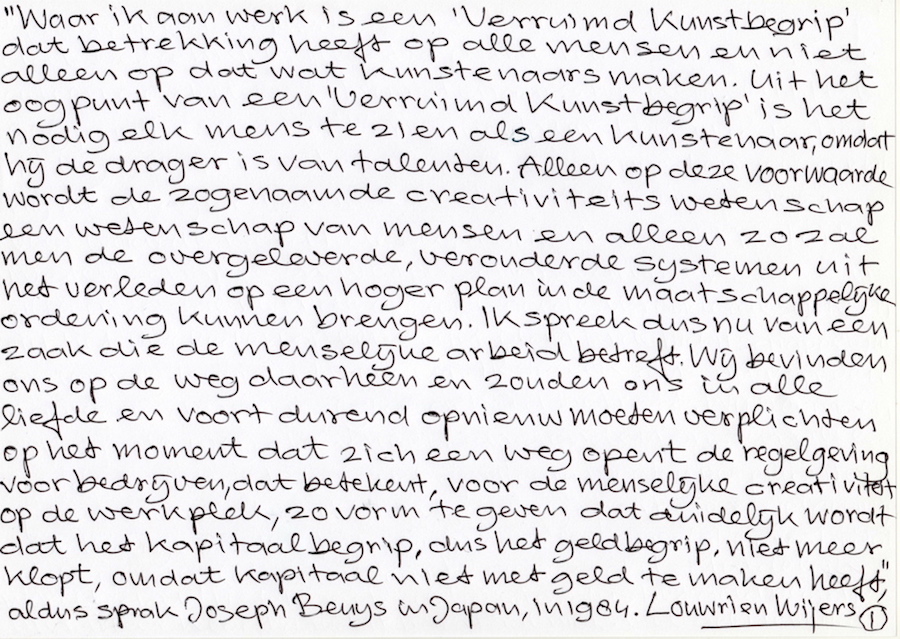 "Waar ik aan werk is een 'Verruimd Kunstbegrip'
dat betrekking heeft op alle mensen en niet
alleen op dat wat kunstenaars maken. Uit het
oogpunt van een 'Verruimd Kunstbegrip' is het
nodig elk mens te zien als een kunstenaar, omdat
hij de drager is van talenten. Alleen op deze voorwaarde
wordt de zogenaamde creativiteits wetenschap
een wetenschap van mensen en alleen zo zal
men de overgeleverde, verouderde systemen uit
het verleden op een hoger plan in de maatschappelijke
ordening kunnen brengen. Ik spreek dus nu van een
zaak die de menselijke arbeid betreft. Wij bevinden
ons op de weg daarheen en zouden ons in alle
liefde en voortdurend opnieuw moeten verplichten
op het moment dat zich een weg opent de regelgeving
voor bedrijven, dat betekent, voor de menselijke creativiteit
op de werkplek, zo vorm te geven dat duidelijk wordt
dat het kapitaalbegrip, dus het geldbegrip, niet meer
klopt, omdat kapitaal niet met geld te maken heeft",
aldus sprak Joseph Beuys in Japan, in 1984. Louwrien Wijers 1